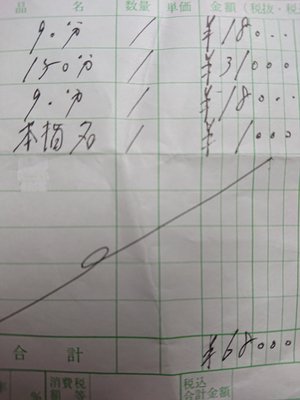 品 名 数量 単価 金額(税抜・税
90分 1 ¥18000
150分 1 ¥31000
90分 1 ¥18000
本指名 1 ¥1000
合計 ¥68000
% 消費税額等 税込合計金額